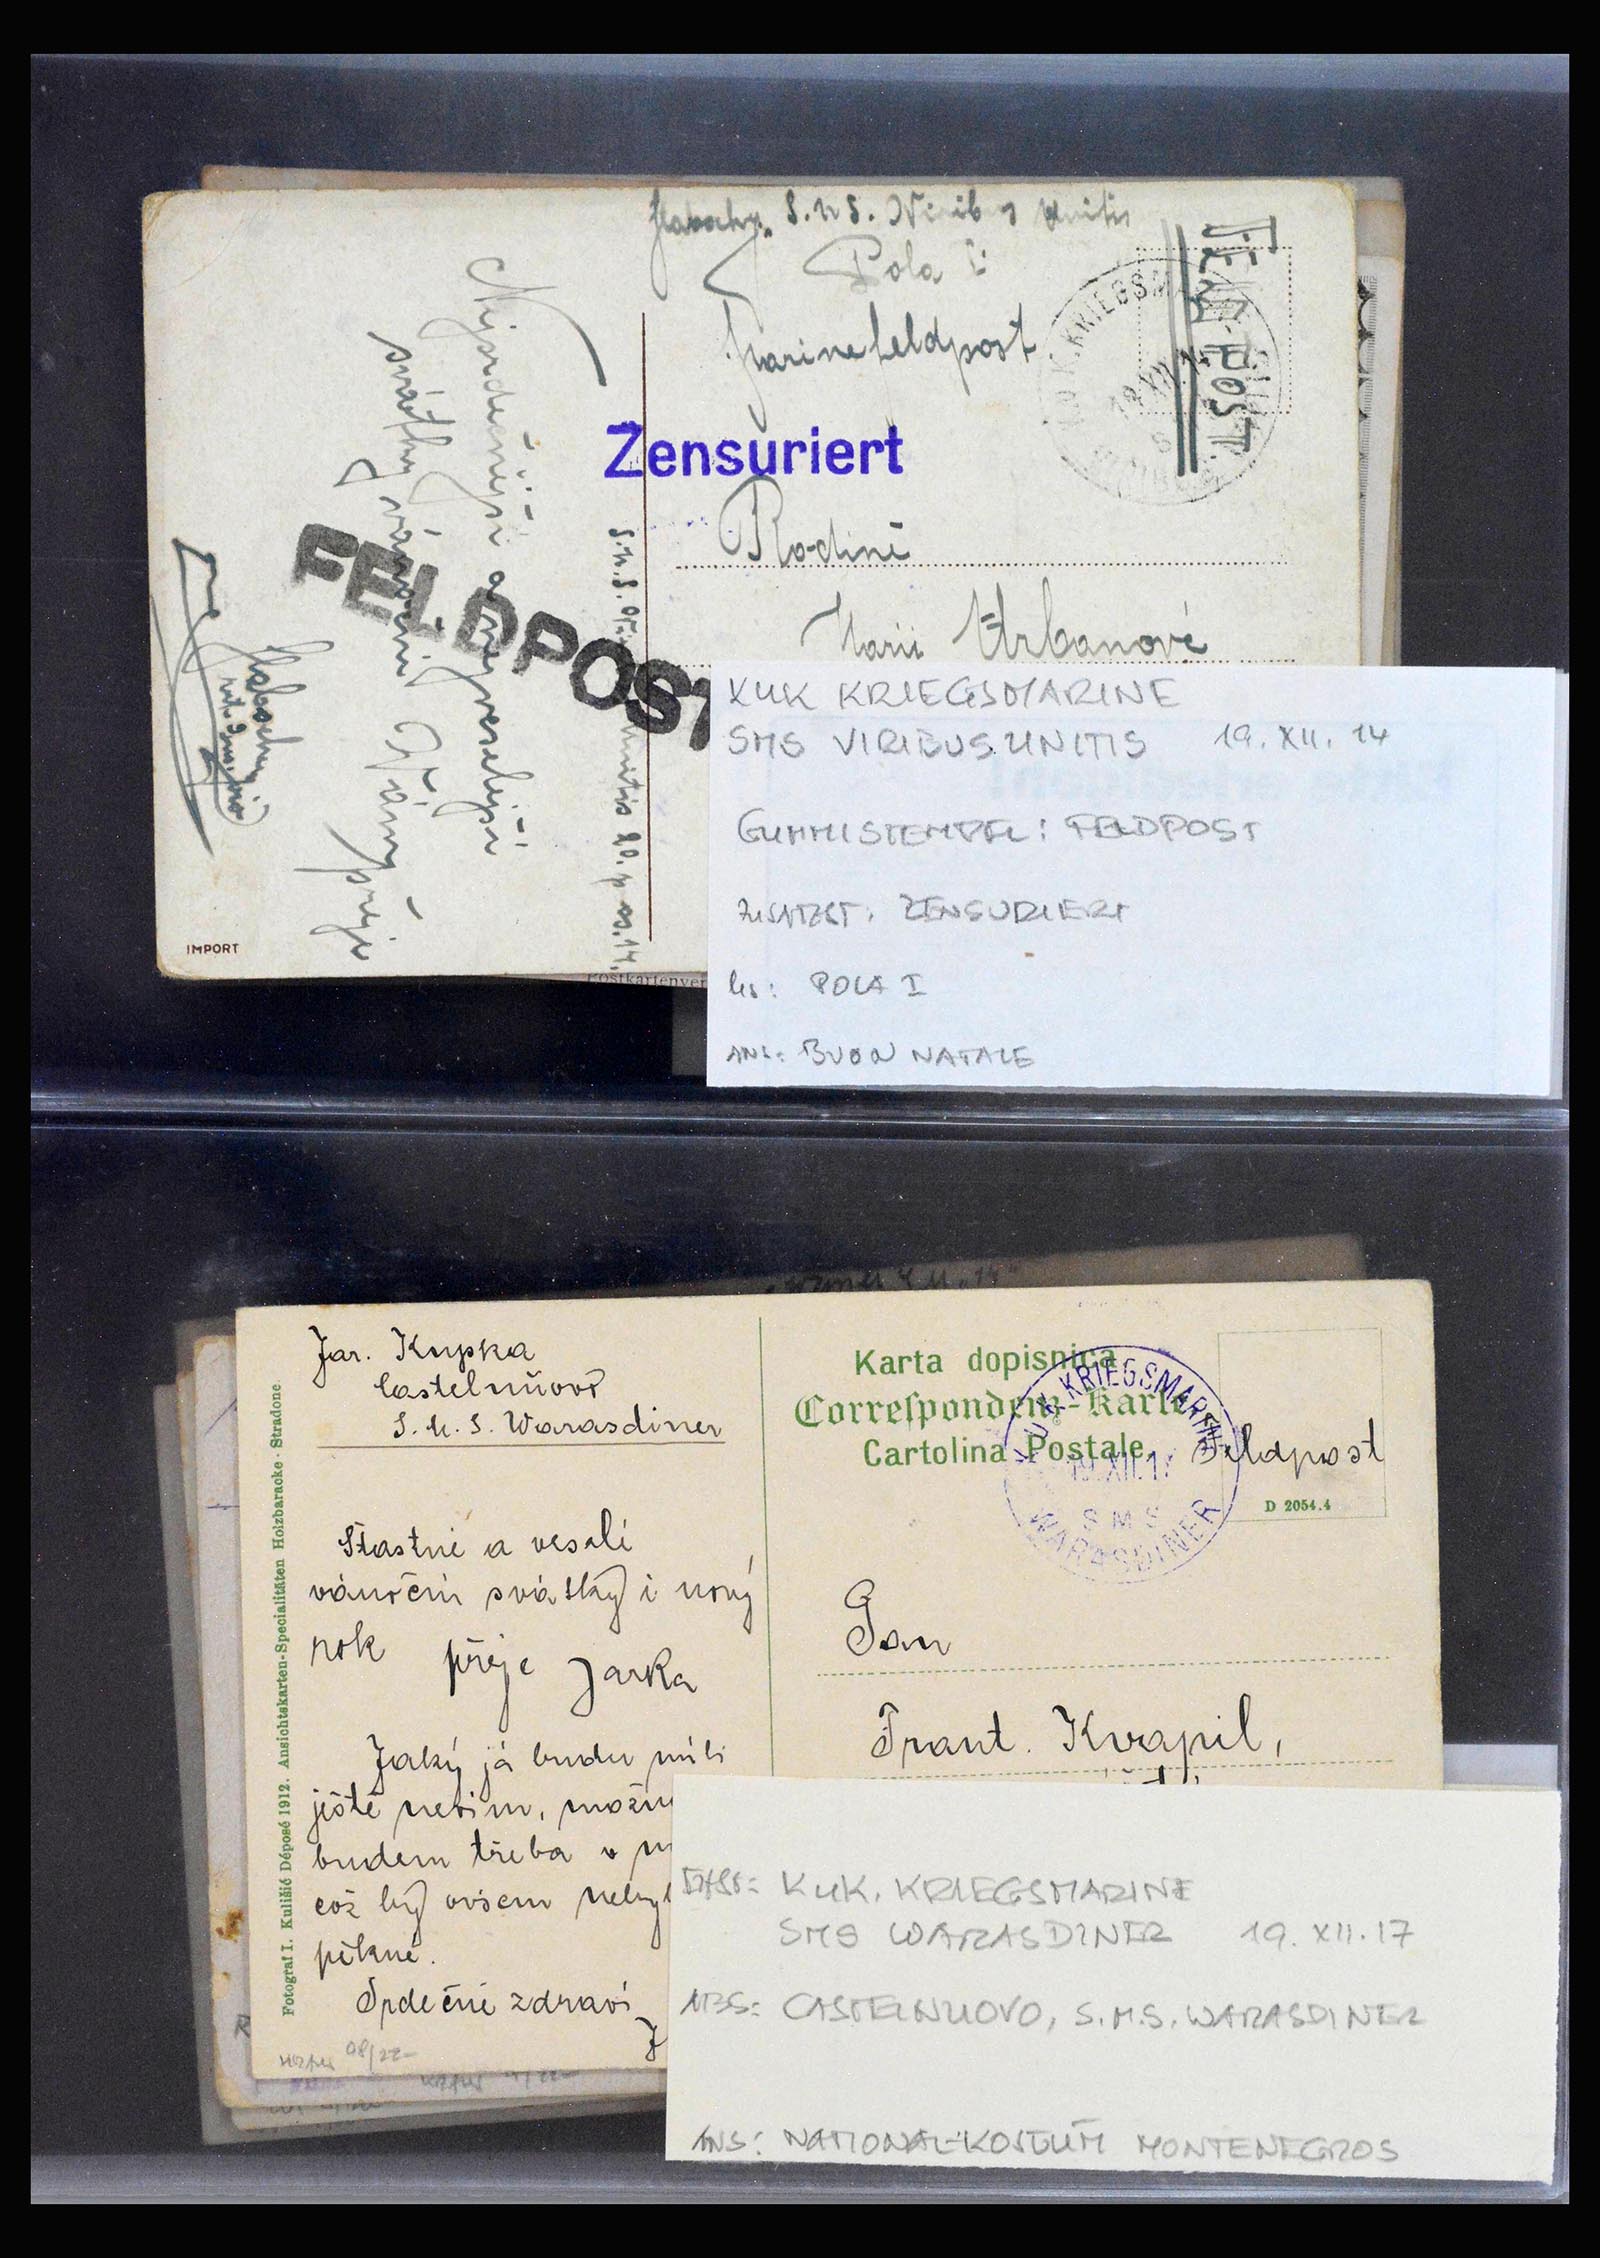 S.M.S. Viribus Unitis
Pola I
Marinefeldpost
FELDPOST
K.U.K. KRIEGSMARINE
Zensuriert
Rodině
Marii Urbanové
FELDPOST
svátky vánoční Vám přeje
IMPORT
Postkartenver
KUK KRIEGSMARINE
SMS VIRIBUS UNITIS 19. XII. 14
GUMMISTEMPEL: FELDPOST
ZUSATZST: ZENSURIERT
POLA I
ANS: BUON NATALE
Jar. Kupka
Castelnuovo
S.M.S. Warasdiner
Štastné a veselé
vánoční svátky i nový
rok přeje Jarka
Jaký já budu míti
ještě nevim, možn
budem třeba v m
což by ovšem neby
pěkné.
Srdečně zdraví
J
08/22-
Fotograf I. Kulišić Déposé 1912. Ansichtskarten-Specialitäten Holzbaracke Stradone
Karta dopisnica
Correspondenz-Karte
Cartolina Postale
Feldpost
D 2054.4
K.U.K. KRIEGSMARINE
19.XII.17
SMS
WARASDINER
Pan
Frant. Kvapil,
KUK. KRIEGSMARINE
SMS WARASDINER 19. XII. 17
ABS: CASTELNUOVO, S.M.S. WARASDINER
ANS: NATIONAL-KOSTÜM MONTENEGROS